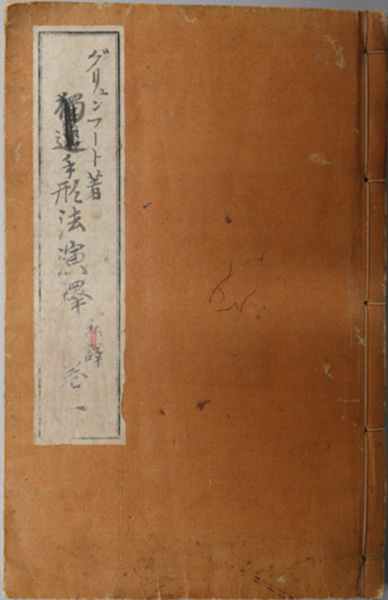 グリュンフート著
獨逸手形法演繹
卷一